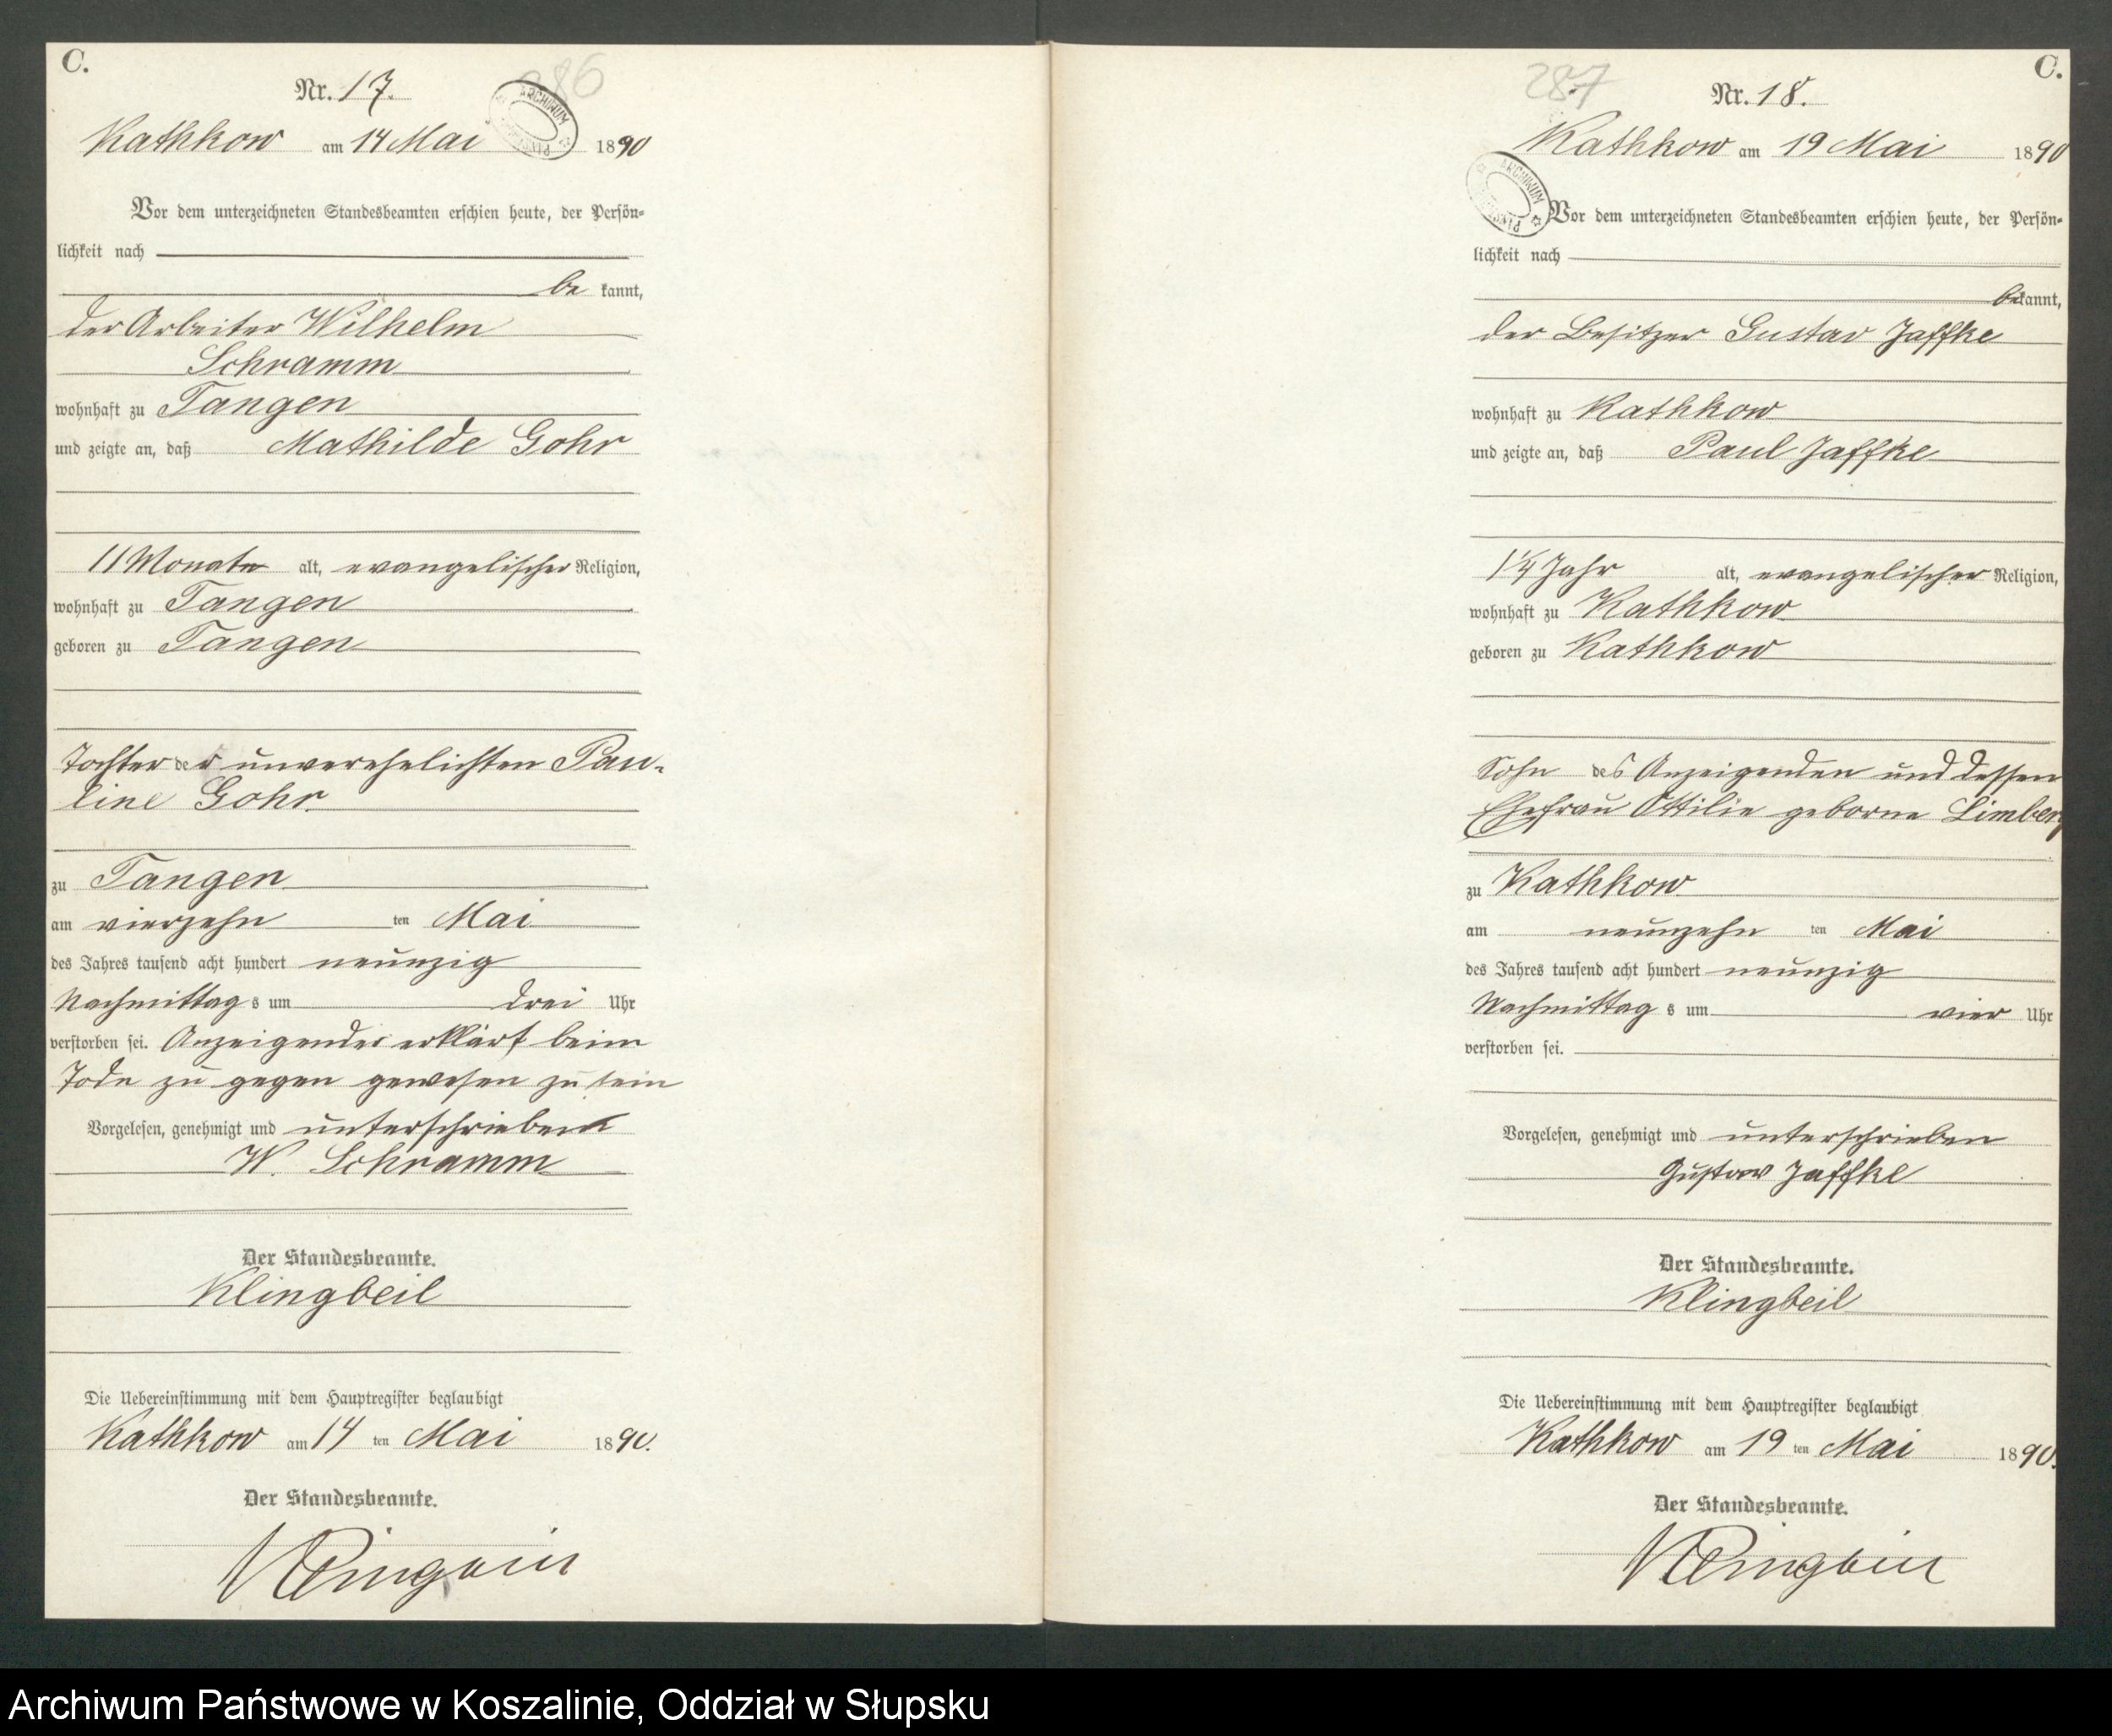 C.
Nr. 17.
286
ARCHIWUM
Kathkow am 14 Mai 1890
Vor dem unterzeichneten Standesbeamten erschien heute, der Persön-
lichkeit nach
be kannt,
der Arbeiter Wilhelm
Schramm
wohnhaft zu Tangen
und zeigte an, daß Mathilde Gohr
11 Monate alt, evangelischer Religion,
wohnhaft zu Tangen
geboren zu Tangen
Tochter der unverehelichten Pau-
line Gohr
zu Tangen
am vierzehn ten Mai
des Jahres tausend acht hundert neunzig
Nachmittag s um drei Uhr
verstorben sei. Anzeigender erklärt beim
Tode zu gegen gewesen zu sein
Vorgelesen, genehmigt und unterschrieben
W. Schramm
Der Standesbeamte.
Klingbeil
Die Uebereinstimmung mit dem Hauptregister beglaubigt
Kathkow am 14 ten Mai 1890.
Der Standesbeamte.
Klingbeil
C.
287
Nr. 18.
Kathkow am 19 Mai 1890
ARCHIWUM
Vor dem unterzeichneten Standesbeamten erschien heute, der Persön-
lichkeit nach
bekannt,
der Besitzer Gustav Jaffke
wohnhaft zu Kathkow
und zeigte an, daß Paul Jaffke
1¼ Jahr alt, evangelischer Religion,
wohnhaft zu Kathkow
geboren zu Kathkow
Sohn des Anzeigenden und dessen
Ehefrau Ottilie geborne Limberg
zu Kathkow
am neunzehn ten Mai
des Jahres tausend acht hundert neunzig
Nachmittag s um vier Uhr
verstorben sei.
Vorgelesen, genehmigt und unterschrieben
Gustav Jaffke
Der Standesbeamte.
Klingbeil
Die Uebereinstimmung mit dem Hauptregister beglaubigt
Kathkow am 19 ten Mai 1890.
Der Standesbeamte.
Klingbeil
Archiwum Państwowe w Koszalinie, Oddział w Słupsku